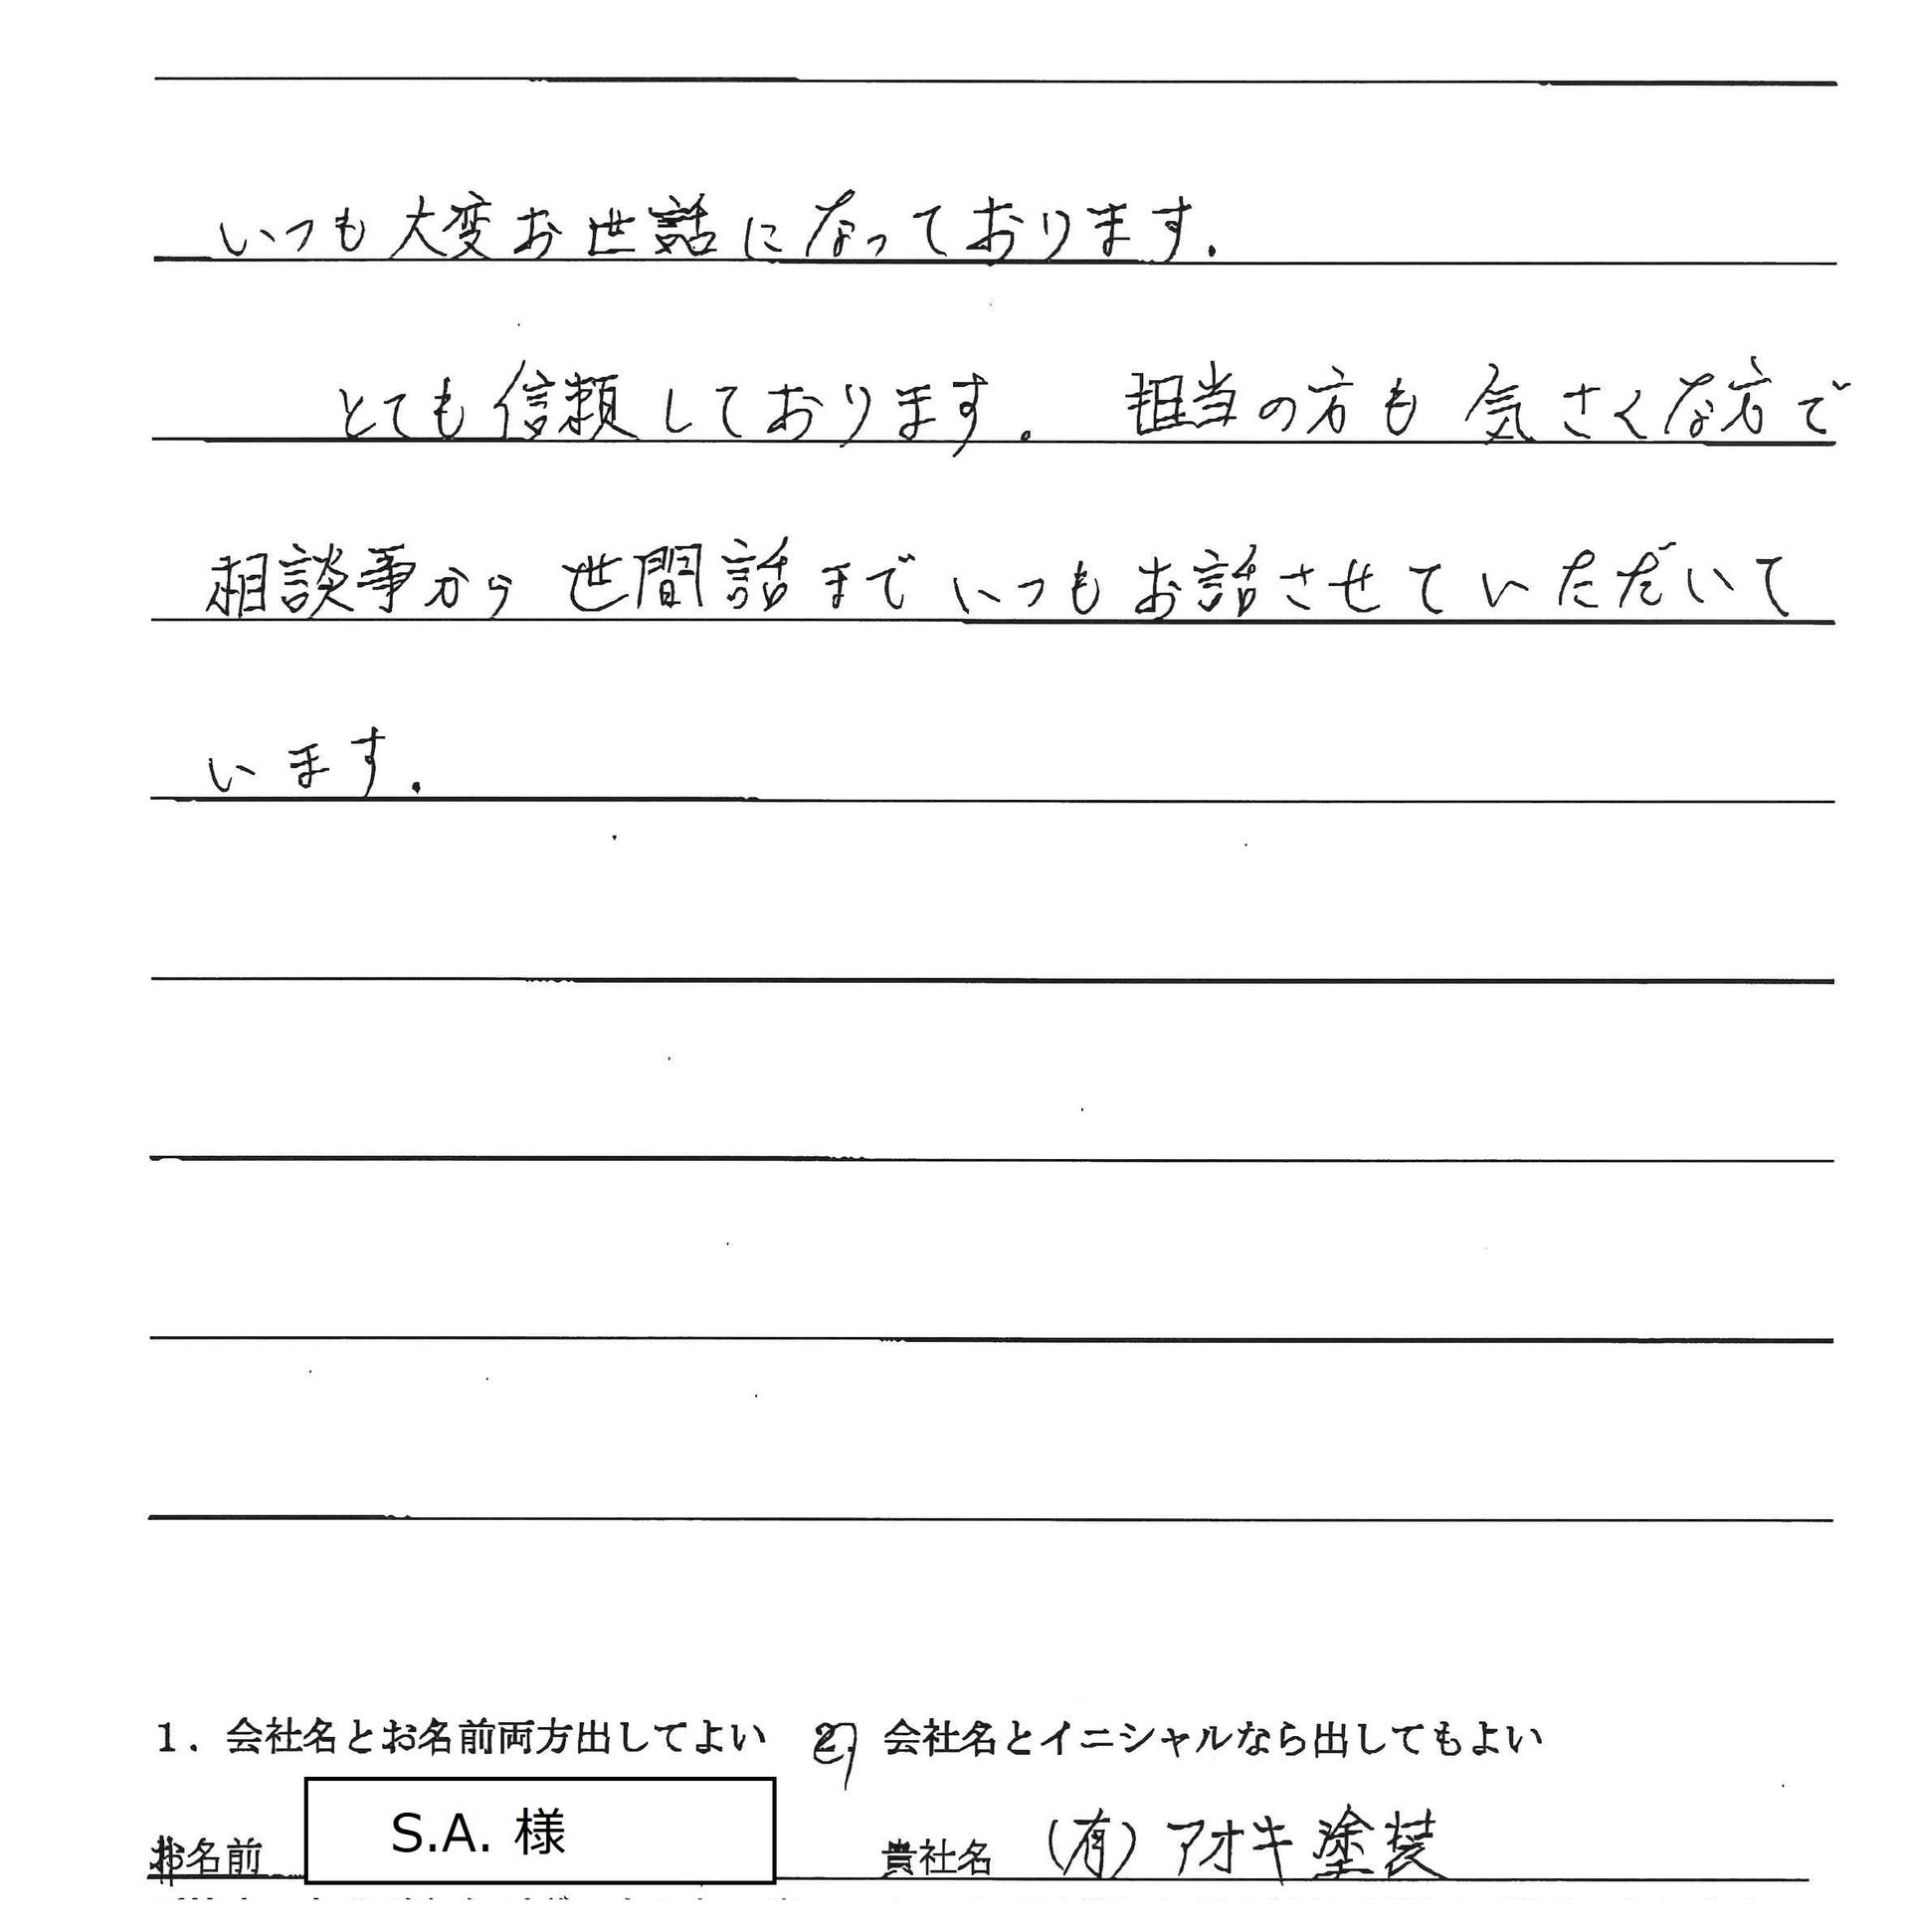 いつも大変お世話になっております.
とても信頼しております。 担当の方も気さくな方で
相談事から世間話までいつもお話させていただいて
います.
1. 会社名とお名前両方出してよい 2. 会社名とイニシャルなら出してもよい
お名前 S.A. 様 貴社名 (有)アオキ塗装